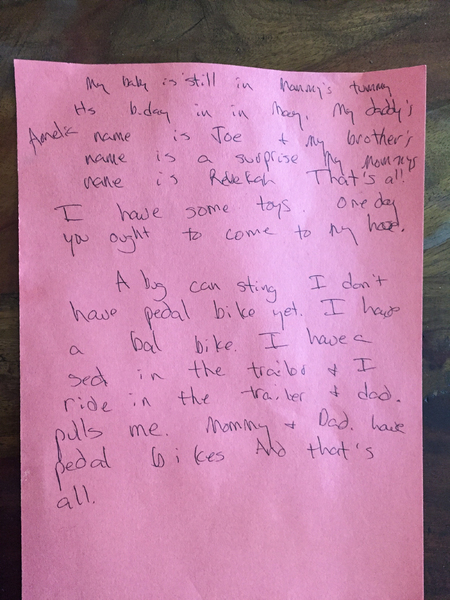 My baby is still in Mommy's tummy
Its b.day in in May. My daddy's
Amelia name is Joe + my brother's
name is a surprise My mommys
name is Rebekah That's all
I have some toys. One day
you ought to come to my
A bug can sting I don't
have pedal bike yet. I have
a bal bike. I have a
seat in the trailor + I
ride in the trailer + dad.
pulls me. Mommy + Dad. have
pedal bikes And that's
all.